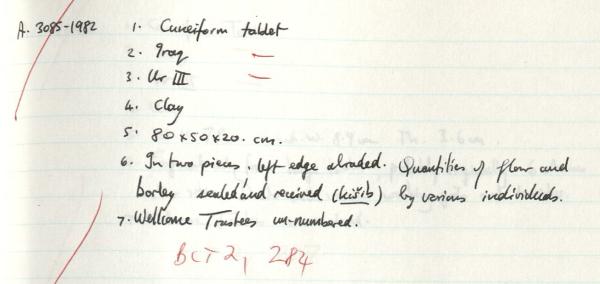 A. 3085-1982 1. Cuneiform tablet
2. Iraq
3. Ur III
4. Clay
5. 80 x 50 x 20. cm.
6. In two pieces, left edge abraded. Quantities of flour and
barley sealed and received (kišib) by various individuals.
7. Wellcome Trustees un-numbered.
BCT 2, 284